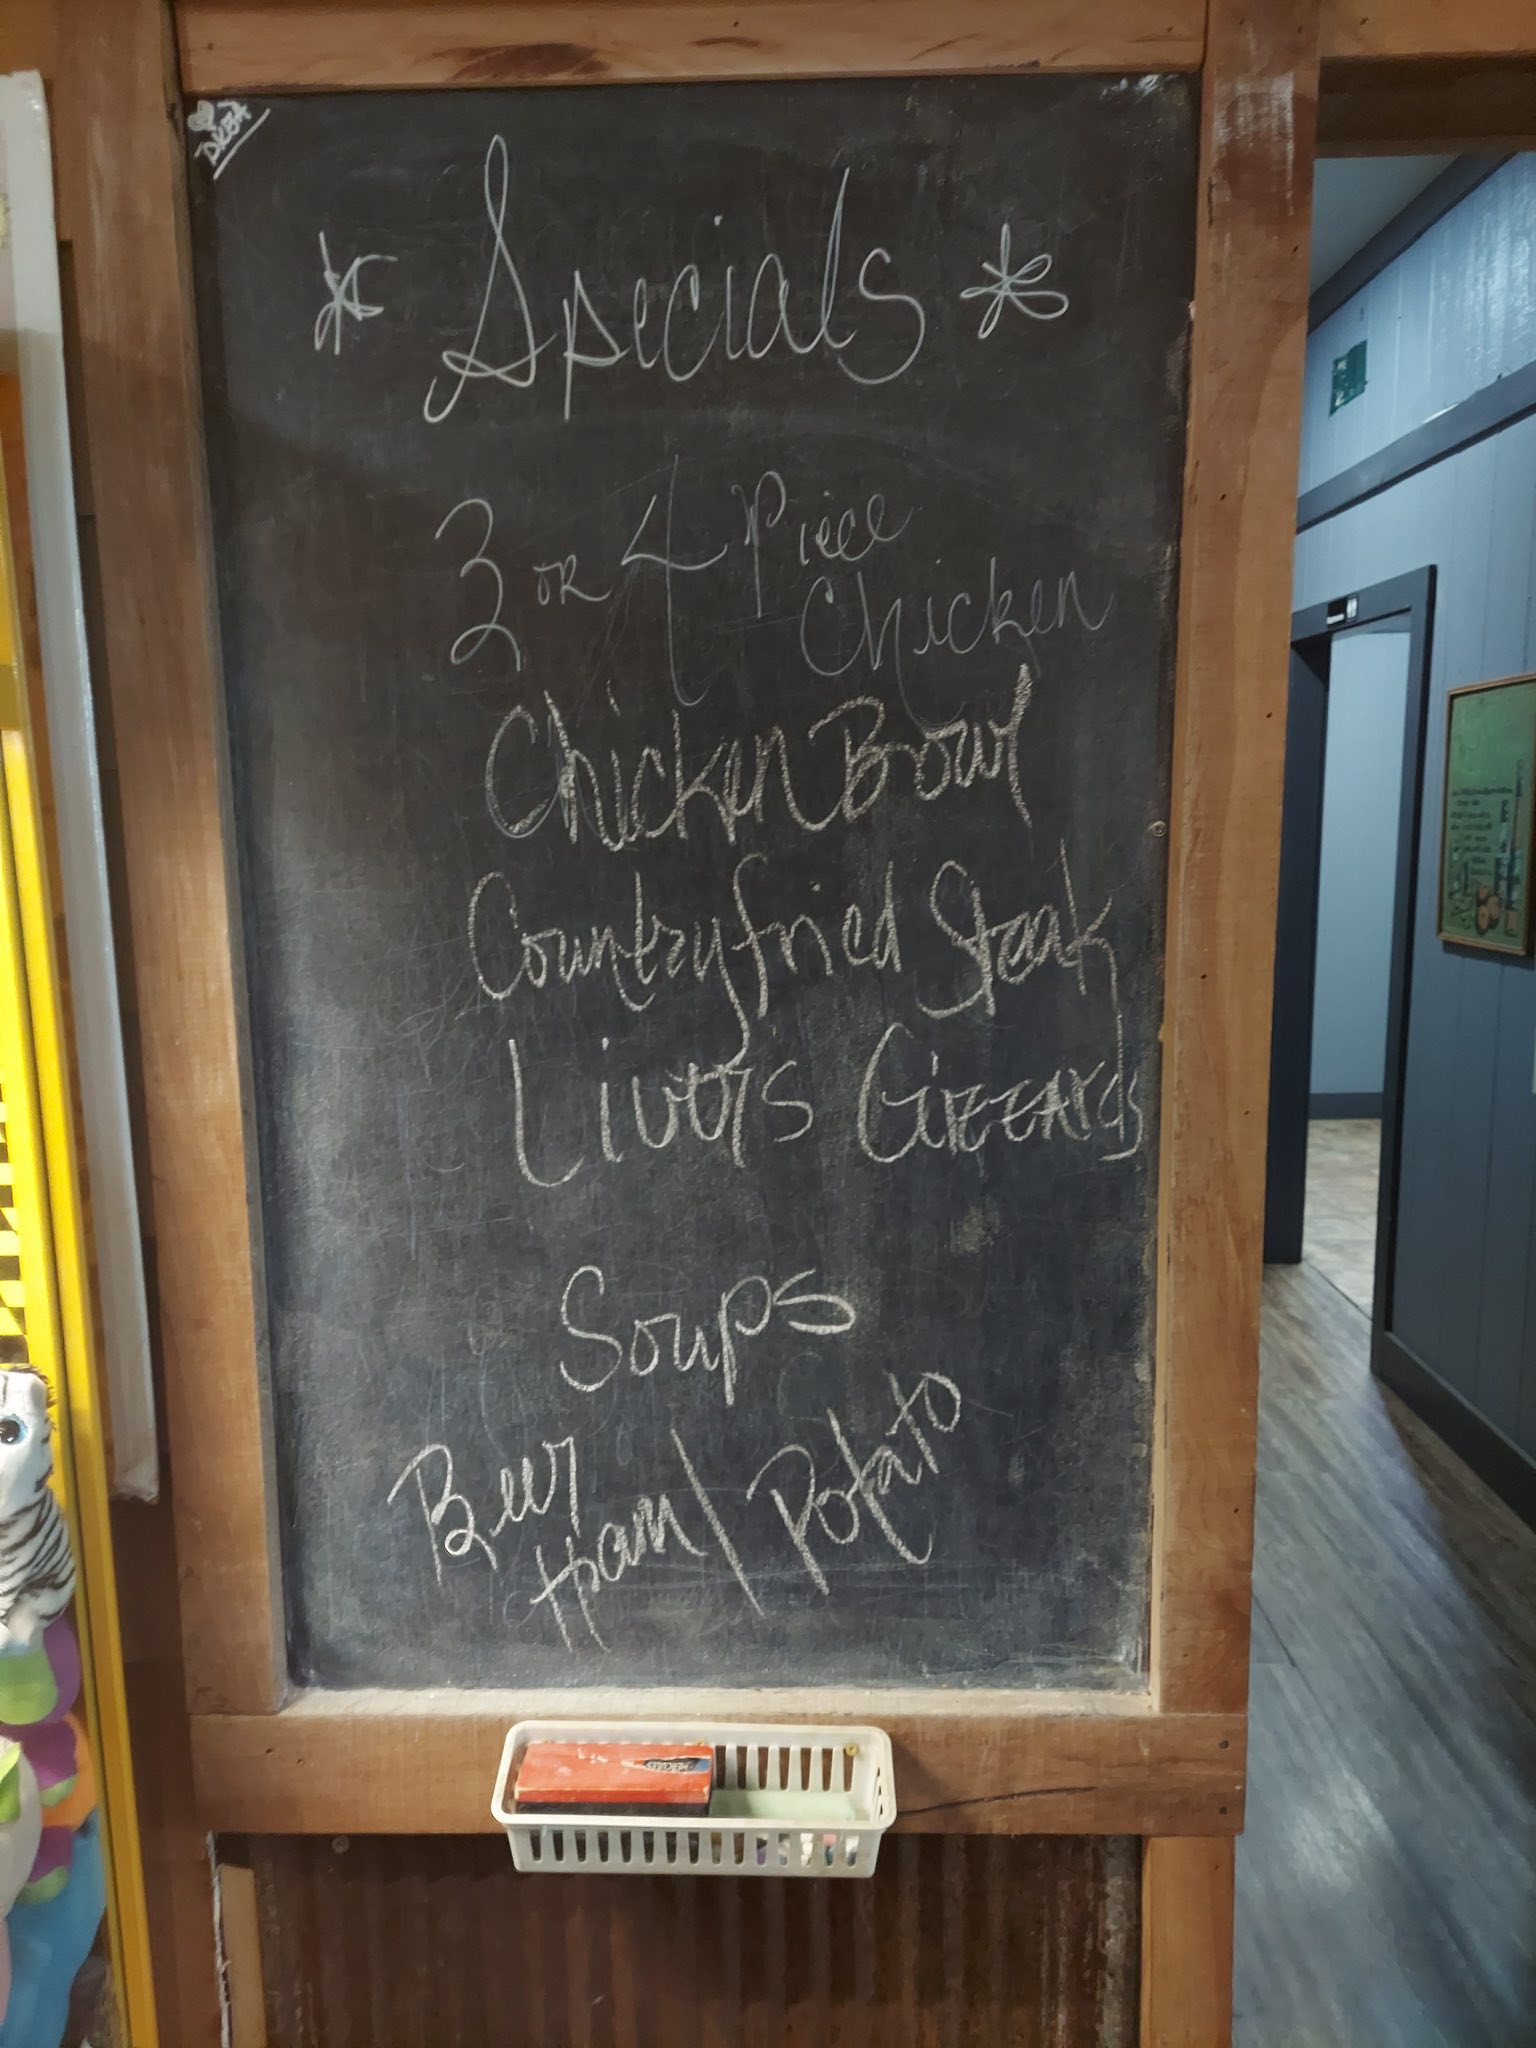 * Specials *
3 or 4 Piece
Chicken
Chicken Bowl
Country fried Steak
Livers Gizzards
Soups
Beer
Ham / Potato